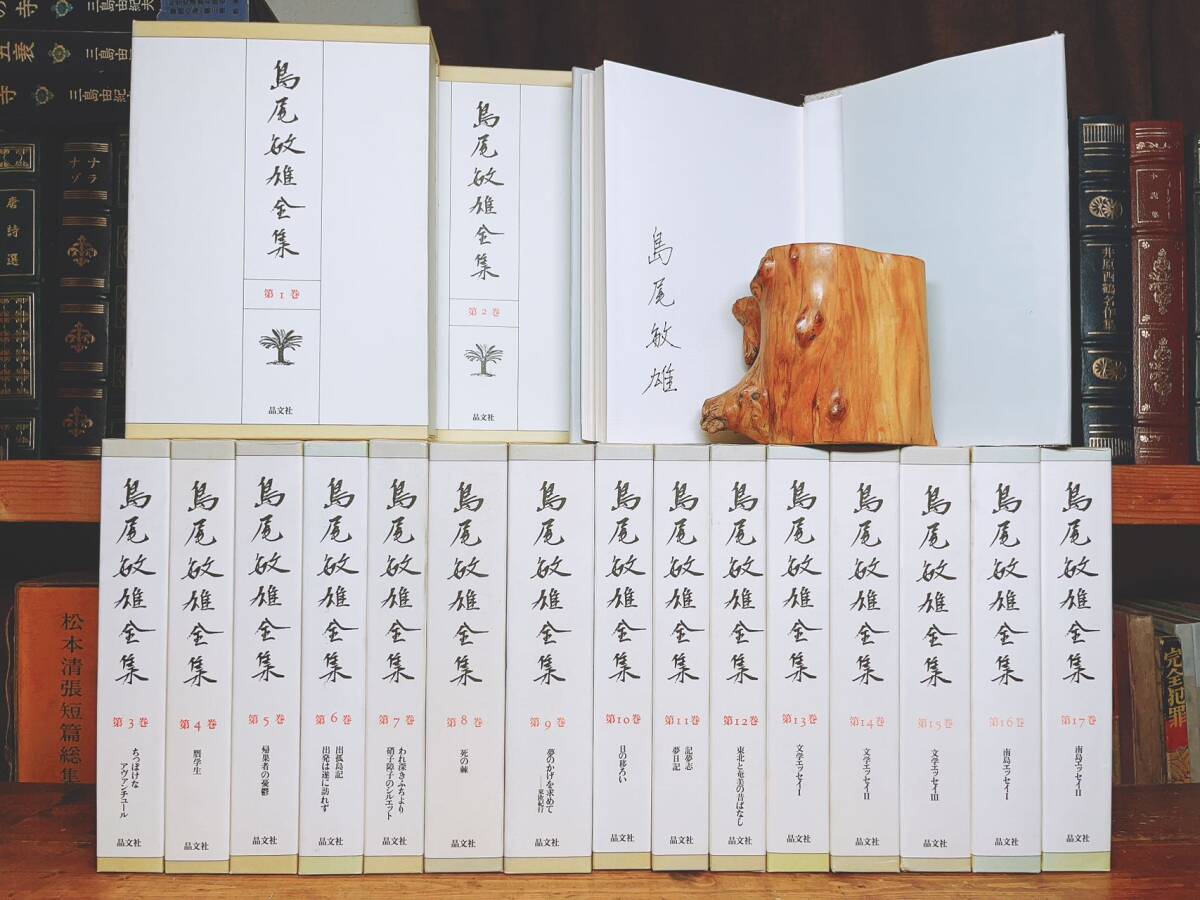 の寺
三島由紀夫
五衰
三島由紀
寺
三島由紀
ナナ
ゾラ
唐詩選
島尾敏雄全集
第1巻
晶文社
島尾敏雄全集
第2巻
晶文社
島尾敏雄
井原西鶴名作集
小説集
島尾敏雄全集
第3巻
ちっぽけな
アヴァンチュール
晶文社
島尾敏雄全集
第4巻
贋学生
晶文社
島尾敏雄全集
第5巻
帰巣者の憂鬱
晶文社
島尾敏雄全集
第6巻
出孤島記
出発は遂に訪れず
晶文社
島尾敏雄全集
第7巻
われ深きふちより
硝子障子のシルエット
晶文社
島尾敏雄全集
第8巻
死の棘
晶文社
島尾敏雄全集
第9巻
夢のかげを求めて
──東欧紀行
晶文社
島尾敏雄全集
第10巻
日の移ろい
晶文社
島尾敏雄全集
第11巻
記夢志
夢日記
晶文社
島尾敏雄全集
第12巻
東北と奄美の昔ばなし
晶文社
島尾敏雄全集
第13巻
文学エッセイI
晶文社
島尾敏雄全集
第14巻
文学エッセイII
晶文社
島尾敏雄全集
第15巻
文学エッセイIII
晶文社
島尾敏雄全集
第16巻
南島エッセイI
晶文社
島尾敏雄全集
第17巻
南島エッセイII
晶文社
松本清張短篇総集
完全犯罪